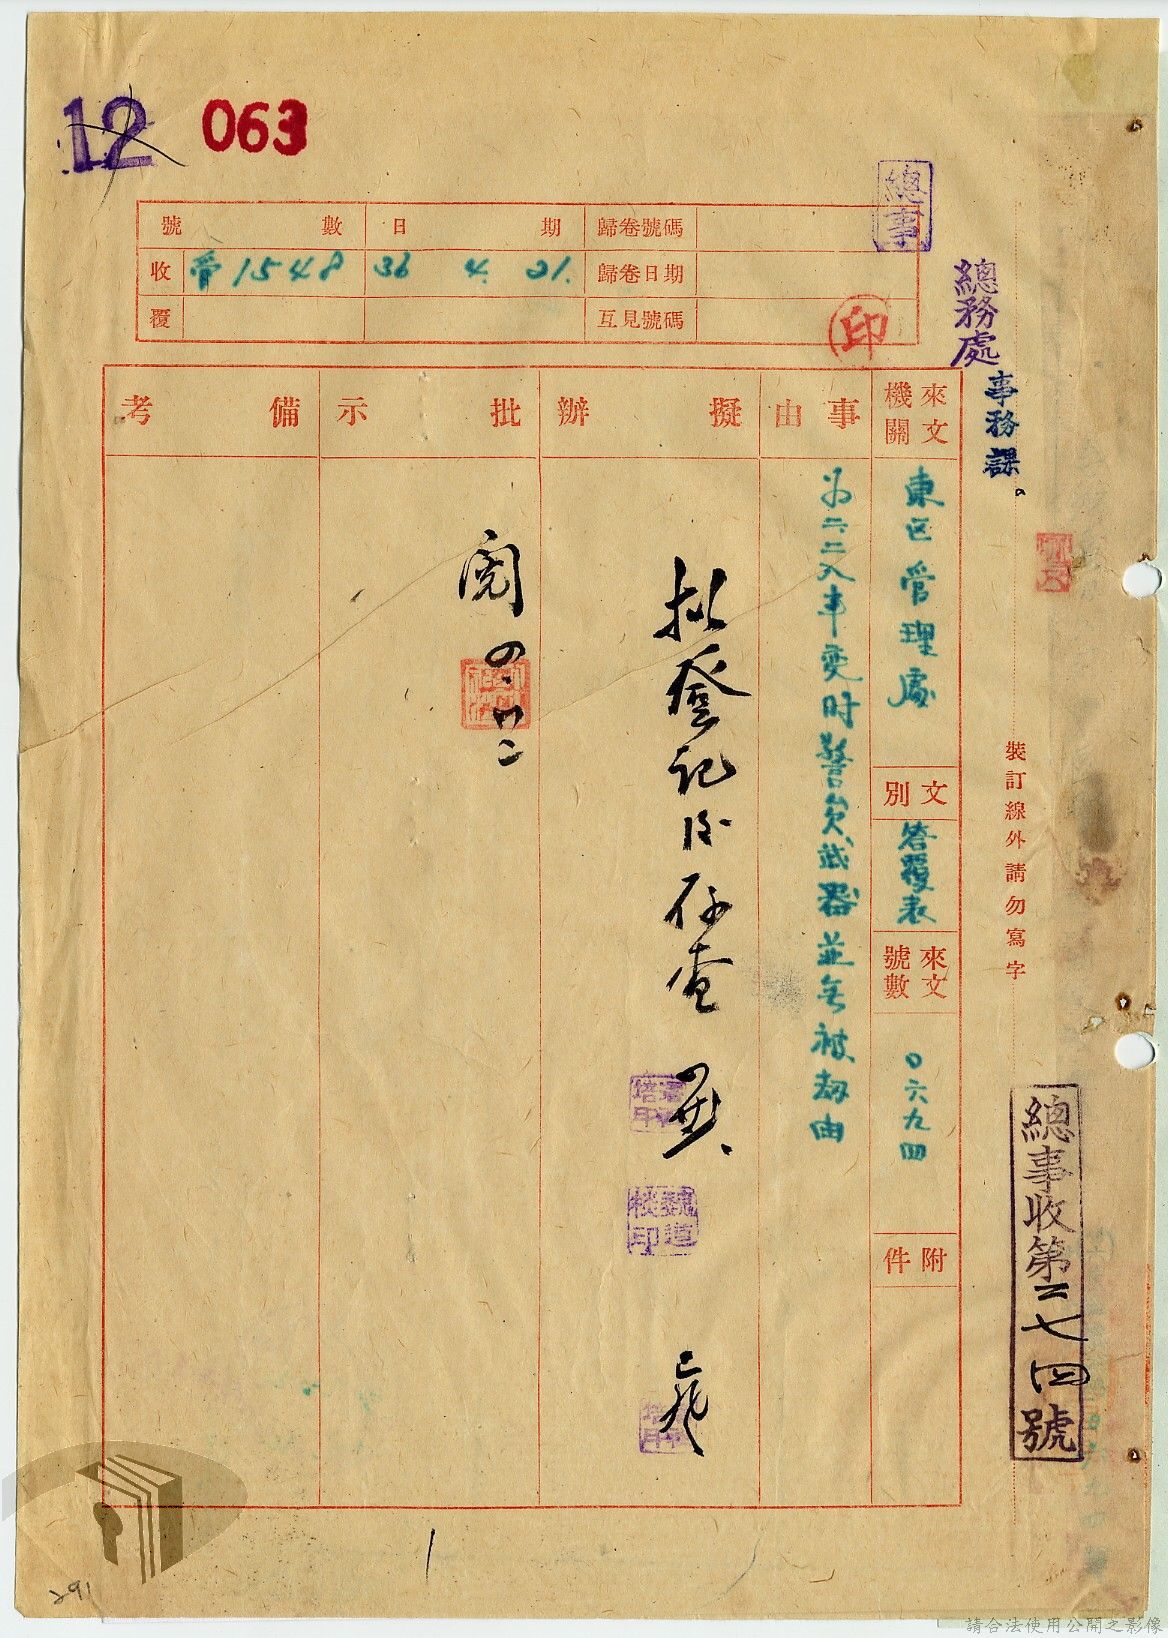 12 063
號數 日期 歸卷號碼
收 管1548 36 4. 21. 歸卷日期
覆 互見號碼
總事
印
總務處
事務課。
來文機關
事由
擬辦
批示
備考
東区管理處
文別
答覆表
來文號數
0六九四
附件
為二二八事变时警員武器並無被劫由
拟登記后存查
魏道
核印
閱 四.廿二
裝訂線外請勿寫字
總事收第二七四號
291
請合法使用公開之影像